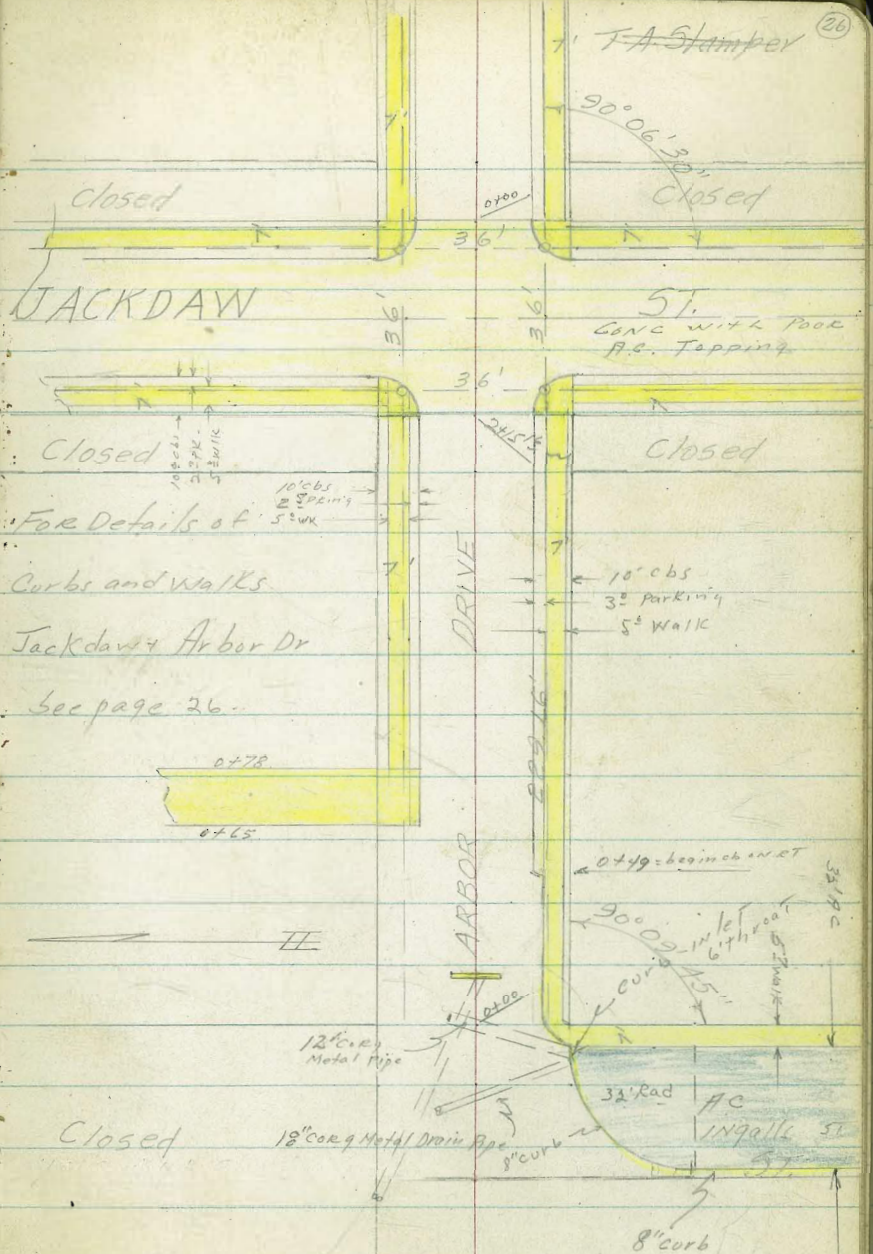 26
T-A-Stamper
7'
7'
90° 06' 30"
Closed
Closed
0+00
7'
36'
7'
JACKDAW
36'
36'
ST.
Conc with Poor
A.C. Topping
7'
36'
7'
Closed
10" cbs
2° PK.
5° Walk
2+15
Closed
10" cbs
5° WK
For Details of
Curbs and Walks
Jackdaw + Arbor Dr
See page 26.
7'
DRIVE
7'
10" cbs
3° Parking
5° Walk
0+78
0+65
ARBOR
0+49 = begin cb on RT
32' AC
90° 09' 45"
Curb Inlet
6' throat
5° Walk
0+00
12" Corg
Metal Pipe
7'
32' Rad
AC
Ingalls St
St.
Closed
18" Corg Metal Drain Pipe
8" curb
8" curb